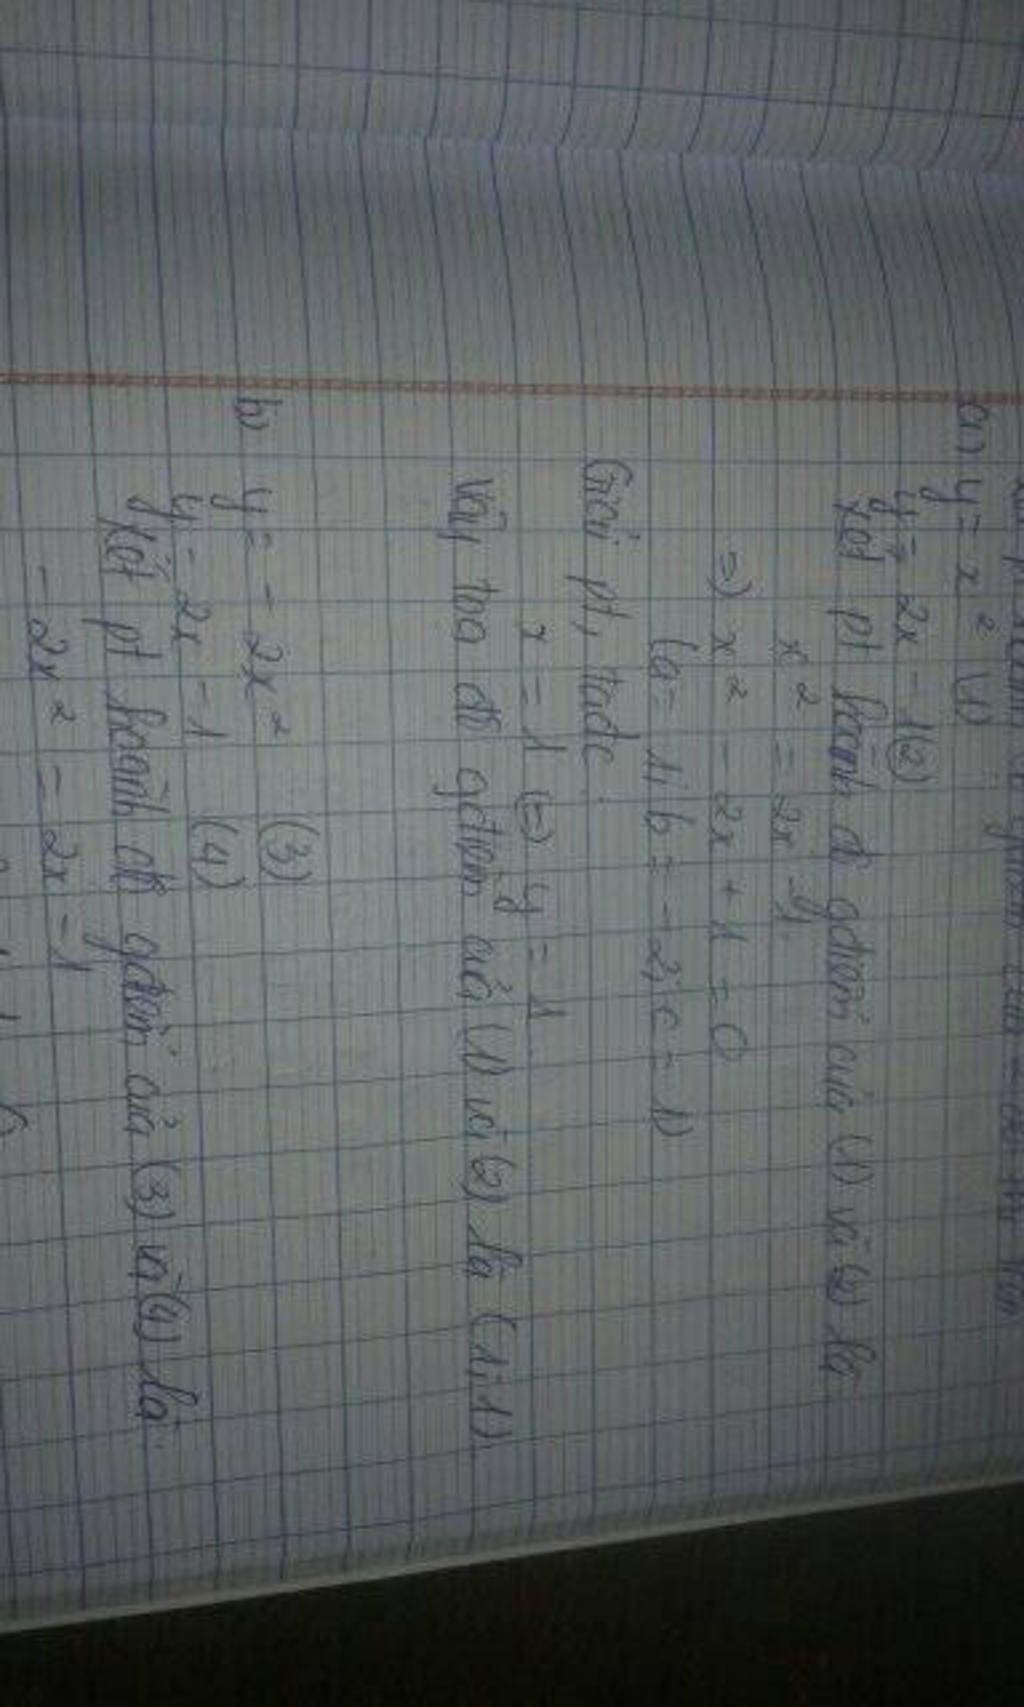 a) y = x² (1)
y = 2x - 1 (2)
Xét pt hoành độ gđiểm của (1) và (2) là
x² = 2x - 1
=> x² - 2x + 1 = 0
(a = 1; b = -2; c = 1)
Giải pt, tađc:
x = 1 (=) y = 1
Vậy tọa độ gđiểm của (1) và (2) là (1;1).
b) y = - 2x² (3)
y = 2x - 1 (4)
Xét pt hoành độ gđiểm của (3) và (4) là
- 2x² = 2x - 1